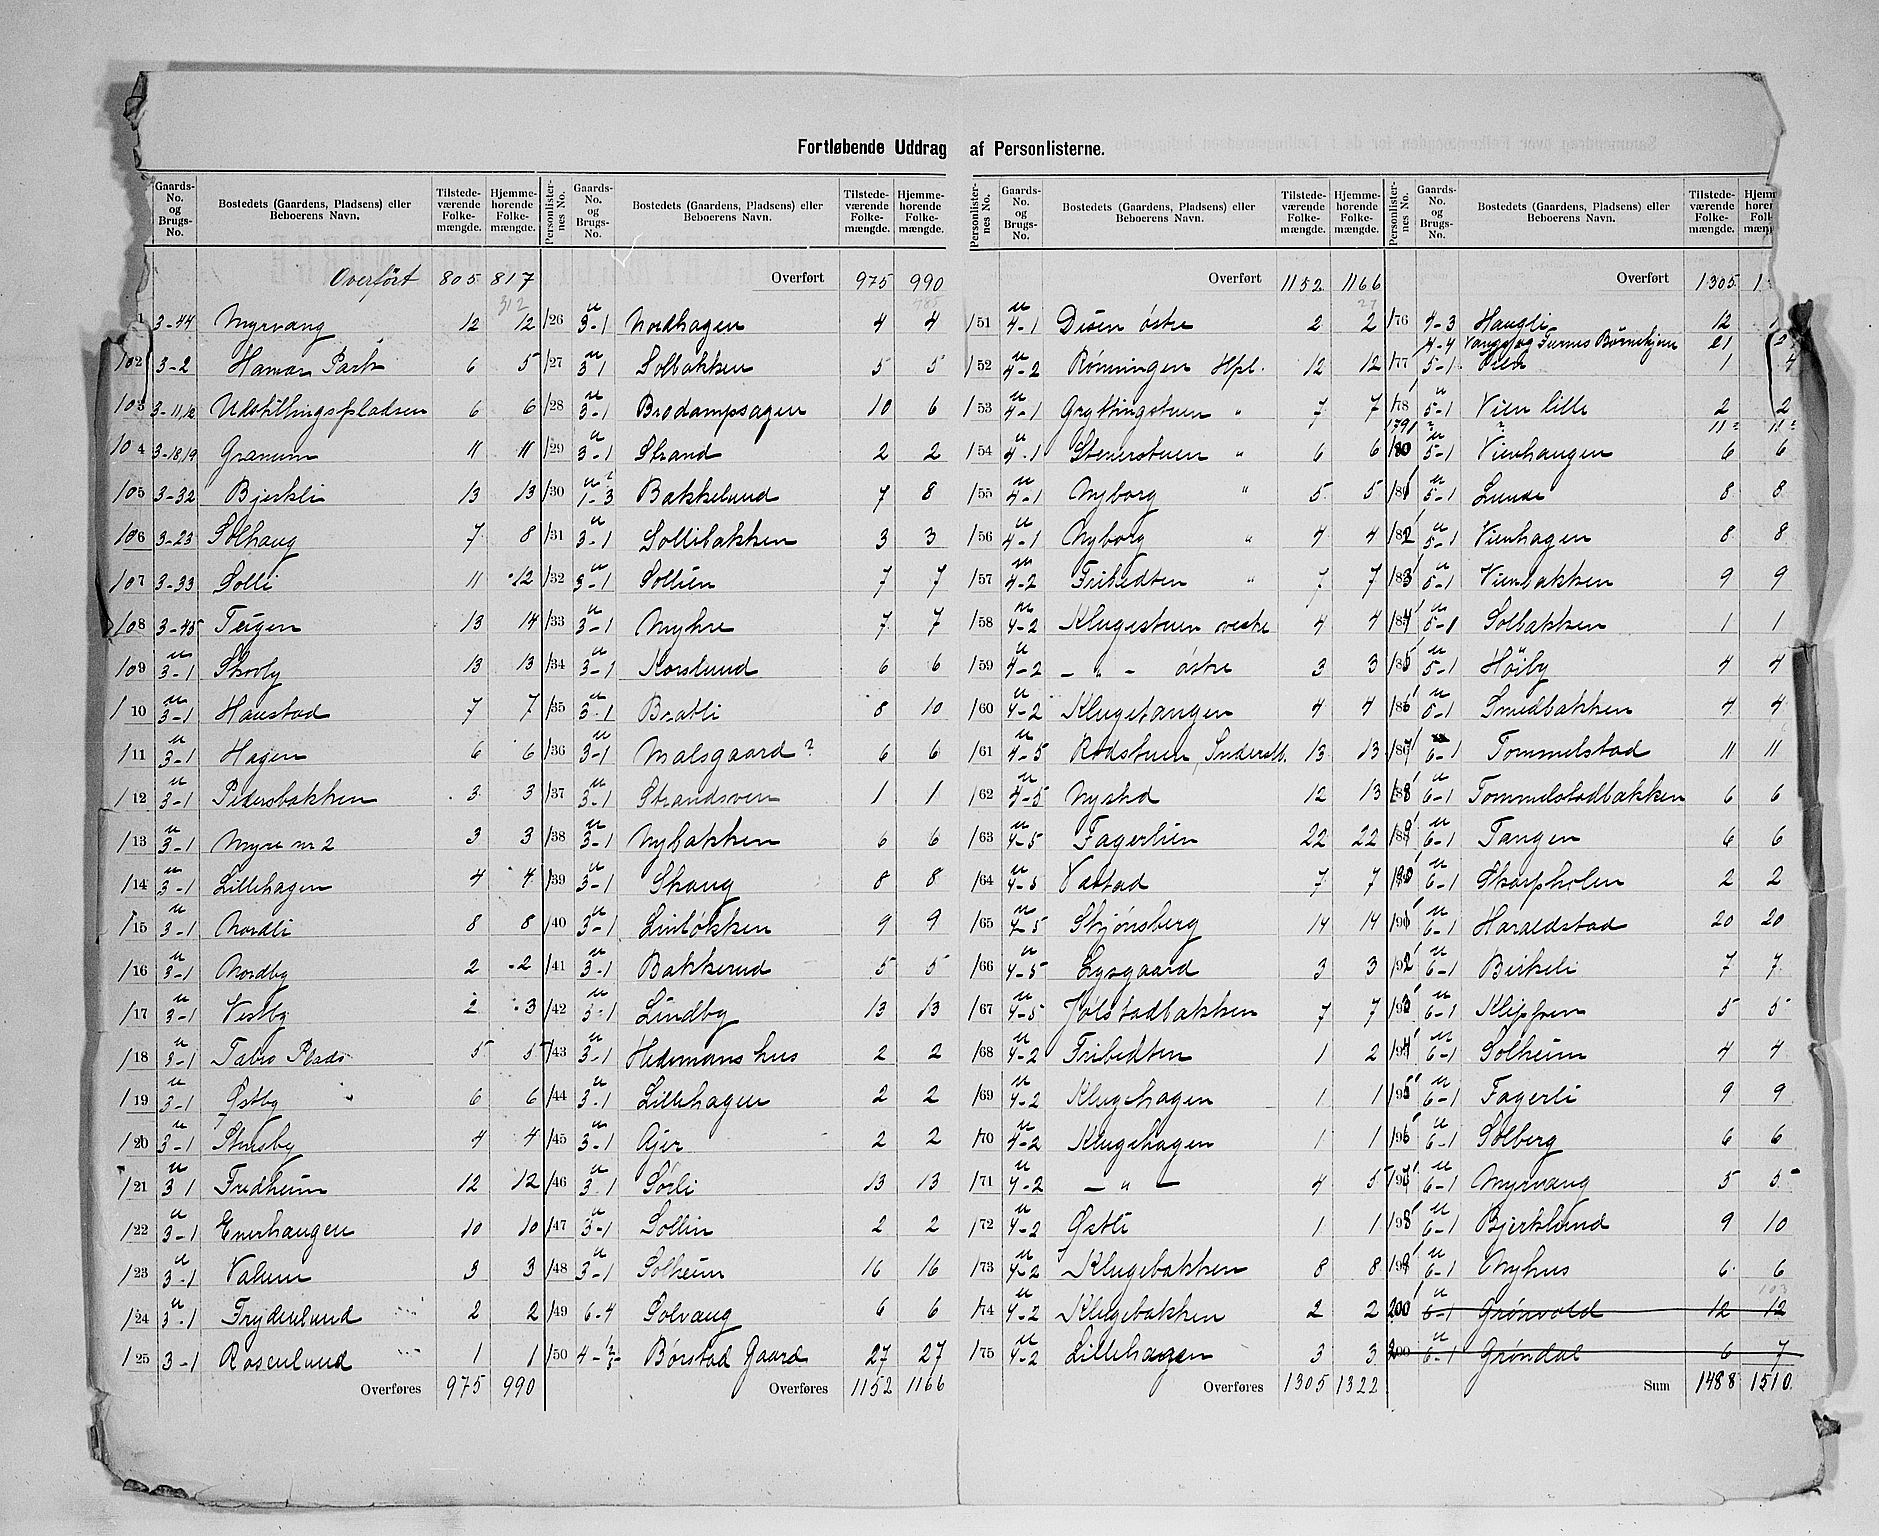 Fortløbende Uddrag af Personlisterne.
Gaards-No. og Brugs-No. | Bostedets (Gaardens, Pladsens) eller Beboerens Navn. | Tilstedeværende Folkemængde. | Hjemmehørende Folkemængde.
Overført 805 817
312
1 3-44 Myrvang 12 12
102 3-2 Hamar Park 6 5
103 3-11,12 Udstillingspladsen 6 6
104 3-18,19 Granum 11 11
105 3-32 Bjerkli 13 13
106 3-23 Solhaug 7 8
107 3-33 Solli 11 12
108 3-45 Teigen 13 14
109 u 3-1 Skovly 13 13
110 u 3-1 Haustad 7 7
111 u 3-1 Hagen 6 6
112 u 3-1 Pedersbakken 3 3
113 u 3-1 Myre nr 2 3 3
114 u 3-1 Lillehagen 4 4
115 u 3-1 Nordli 8 8
116 u 3-1 Nordby 2 2
117 u 3-1 Vestby 2 3
118 u 3-1 Tabro Plads 5 5
119 u 3-1 Østby 6 6
120 u 3-1 Strusby 4 4
121 u 3-1 Fredheim 12 12
122 u 3-1 Enerhaugen 10 10
123 u 3-1 Valum 3 3
124 u 3-1 Frydenlund 2 2
125 3-1 Rosenlund 1 1
Overføres 975 990
Personlisternes No. | Gaards-No. og Brugs-No. | Bostedets (Gaardens, Pladsens) eller Beboerens Navn. | Tilstedeværende Folkemængde. | Hjemmehørende Folkemængde.
Overført 975 990
485
/26 u 3-1 Nordhagen 4 4
/27 u 3-1 Solbakken 5 5
/28 u 3-1 Brodampsagen 10 6
/29 u 3-1 Strand 2 2
/30 u ? 1-3 Bakkelund 7 8
/31 u 3-1 Sollibakken 3 3
/32 u 3-1 Sollien 7 7
/33 u 3-1 Myhre 7 7
/34 u 3-1 Korslund 6 6
/35 u 3-1 Bratli 8 10
/36 u 3-1 Malsgaard? 6 6
/37 u 3-1 Strandsveen 1 1
/38 u 3-1 Nybakken 6 6
/39 u 3-1 Skaug 8 8
/40 u 3-1 Linløkken 9 9
/41 u 3-1 Bakkerud 5 5
/42 u 3-1 Lindby 13 13
/43 u 3-1 Hedemans hus 2 2
/44 u 3-1 Lillehagen 2 2
/45 u 3-1 Ajer 2 2
/46 u 3-1 Sørli 13 13
/47 u 3-1 Sollin 2 2
/48 u 3-1 Solheim 16 16
/49 6-4 Solvang 6 6
/50 4-2/5 Børstad Gaard 27 27
Overføres 1152 1166
Personlisternes No. | Gaards-No. og Brugs-No. | Bostedets (Gaardens, Pladsens) eller Beboerens Navn. | Tilstedeværende Folkemængde. | Hjemmehørende Folkemængde.
Overført 1152 1166
/51 u 4-1 Disen østre 2 2
/52 u 4-2 Rønningen Hpl. 12 12
/53 u 4-1 Gryttingstuen " 7 7
/54 u 4-1 Stenerstuen " 6 6
/55 u 4-1 Nyborg " 5 5
/56 u 4-1 Nyborg " 4 4
/57 u 4-2 Fribedten " 7 7
/58 u 4-2 Klugestuen vestre 4 4
/59 u 4-2 — " — østre 3 3
/60 u 4-2 Klugetangen 4 4
/61 u 4-5 Rødstuen, Snderstt. 13 13
/62 u 4-5 Nystad 12 13
/63 u 4-5 Fagerlien 22 22
/64 u 4-5 Vestad 7 7
/65 u 4-5 Skjønsberg 14 14
/66 u 4-5 Lysgaard 3 3
/67 u 4-5 Jølstadbakken 7 7
/68 u 4-2 Fribedten 1 2
/69 u 4-2 Klugehagen 1 1
/70 u 4-2 Klugehagen 1 1
/71 u 4-2 — " — 4 5
/72 u 4-2 Østli 1 1
/73 u 4-2 Klugebakken 8 8
/74 u 4-2 Klugebakken 2 2
/75 u 4-2 Lillehagen 3 3
Overføres 1305 1322
Personlisternes No. | Gaards-No. og Brugs-No. | Bostedets (Gaardens, Pladsens) eller Beboerens Navn. | Tilstedeværende Folkemængde.
Overført 1305
/76 4-3 Haugli 12
4-4 Vangs og Furnes Børnehjem 21
/77 5-1 Vien 1 4
/78 u 5-1 Vien lille 2 2
179 ? ? 11? 11?
/80 u 5-1 Vienhaugen 6 6
/81 u 5-1 Lunde 8 8
/82 u 5-1 Vienhagen 8 8
/83 u 5-1 Vienbakken 9 9
/84 u 5-1 Solbakken 1 1
/85 u 5-1 Høiby 4 4
/86 u 5-1 Smedbakken 4 4
/87 6-1 Tommelstad 11 11
/88 u 6-1 Tommelstadbakken 6 6
/89 u 6-1 Tangen 6 6
/90 u 6-1 Skarpholen 2 2
/91 u 6-1 Haraldstad 20 20
/92 u 6-1 Birkeli 7 7
/93 u 6-1 Klippen 5 5
/94 u 6-1 Solheim 4 4
/95 u 6-1 Fagerli 9 9
/96 u 6-1 Solberg 6 6
/97 u 6-1 Myrvang 5 5
/98 u 6-1 Bjerklund 9 10
/99 u 6-1 Nyhus 6 6
200 u 6-1 Grønvold 12 12
200 u 6-1 Grøndal 6 7
Sum 1488 1510